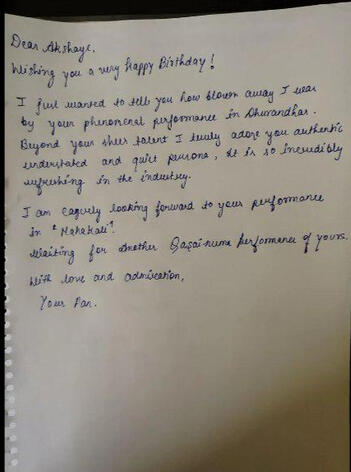 Dear Akshaye,
Wishing you a very happy Birthday!
I just wanted to tell you how blown away I was
by your phenomenal performance in Dhurandhar.
Beyond your sheer talent I truly adore you authentic
understated and quiet persona, It is so incredibly
refreshing in the industry.
I am eagerly looking forward to your performance
in "Mahakali".
Waiting for another performance of yours.
With love and admiration,
Your Fan.